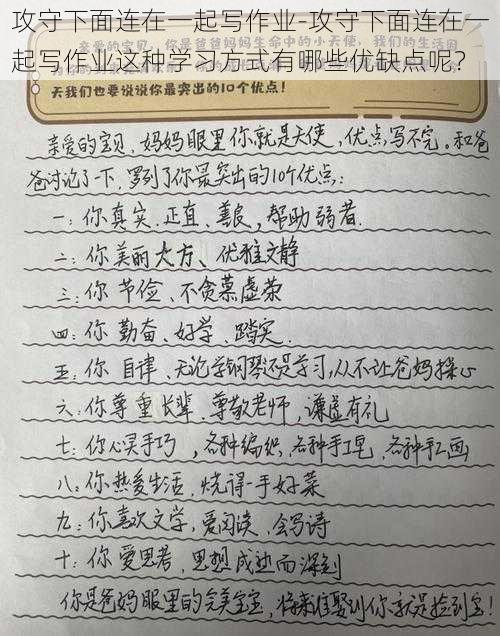 攻守下面连在一起写作业-攻守下面连在一
起写作业这种学习方式有哪些优缺点呢？
亲爱的宝贝，你是爸爸妈妈生命中的小天使，我们的生活因
天我们也要说说你最突出的10个优点！
亲爱的宝贝，妈妈眼里你就是天使，优点写不完。和爸
爸讨论了一下，罗列了你最突出的10个优点：
一：你真实、正直、善良，帮助弱者.
二：你美丽大方、优雅文静
三：你 节俭、不贪慕虚荣
四：你 勤奋、好学、踏实.
五：你 自律、无论学钢琴还是学习，从不让爸妈操心
六：你尊重长辈、尊敬老师，谦虚有礼
七：你心灵手巧，各种编织，各种手工，各种
八：你热爱生活，烧得一手好菜
九：你喜欢文学，爱阅读，会写诗
十：你爱思考，思想成熟而深刻
你是爸妈眼里的完美宝宝，将来谁娶到你就是捡到宝！